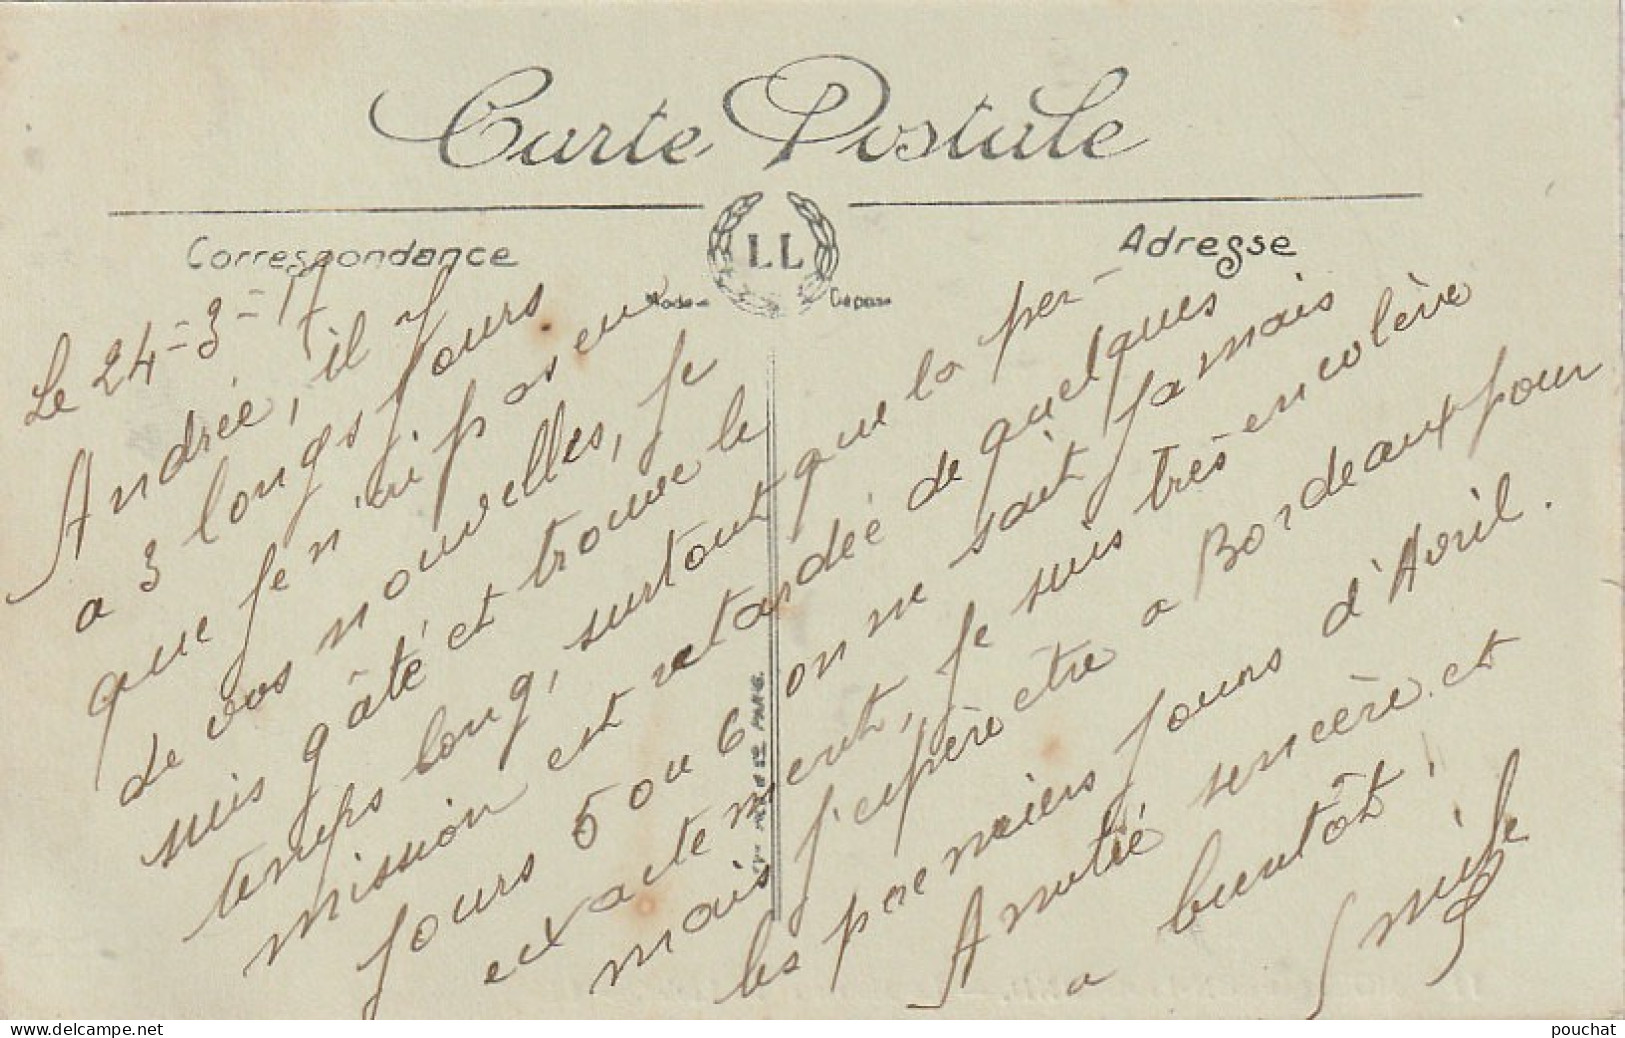 Carte Postale
Correspondance
LL
Adresse
Le 24-3-17
Andrée, il y
a 3 longs jours
que je n'ai pas eu
de vos nouvelles, je
suis gâté, et trouve le
temps long, surtout que la per-
mission est retardée de quelques
jours 5 ou 6 on ne sait jamais
exactement, je suis très en colère
mais j'espère être a Bordeaux pour
les premiers jours d'Avril.
Amitié sencère et
a bientôt,
PARIS.
www.delcampe.net
pouchat